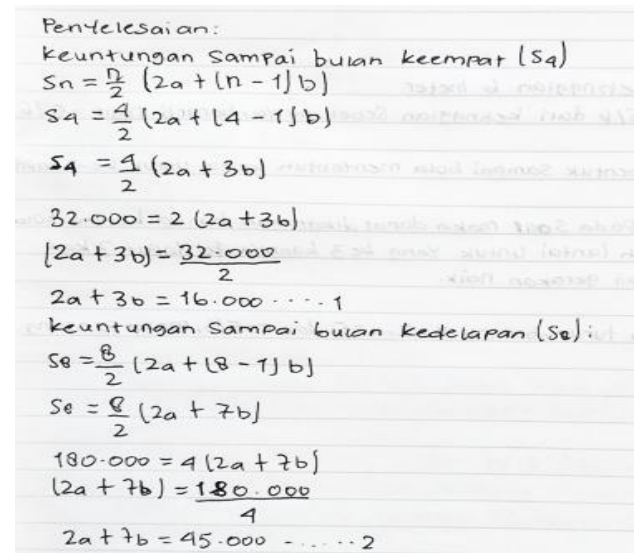 Penyelesaian:
keuntungan sampai bulan keempat (S4)
Sn = n/2 (2a + (n - 1) b)
S4 = 4/2 (2a + (4 - 1) b)
S4 = 4/2 (2a + 3b)
32.000 = 2 (2a + 3b)
(2a + 3b) = 32.000/2
2a + 3b = 16.000 ..... 1
keuntungan sampai bulan kedelapan (S8):
S8 = 8/2 (2a + (8 - 1) b)
S8 = 8/2 (2a + 7b)
180.000 = 4 (2a + 7b)
(2a + 7b) = 180.000/4
2a + 7b = 45.000 ...... 2